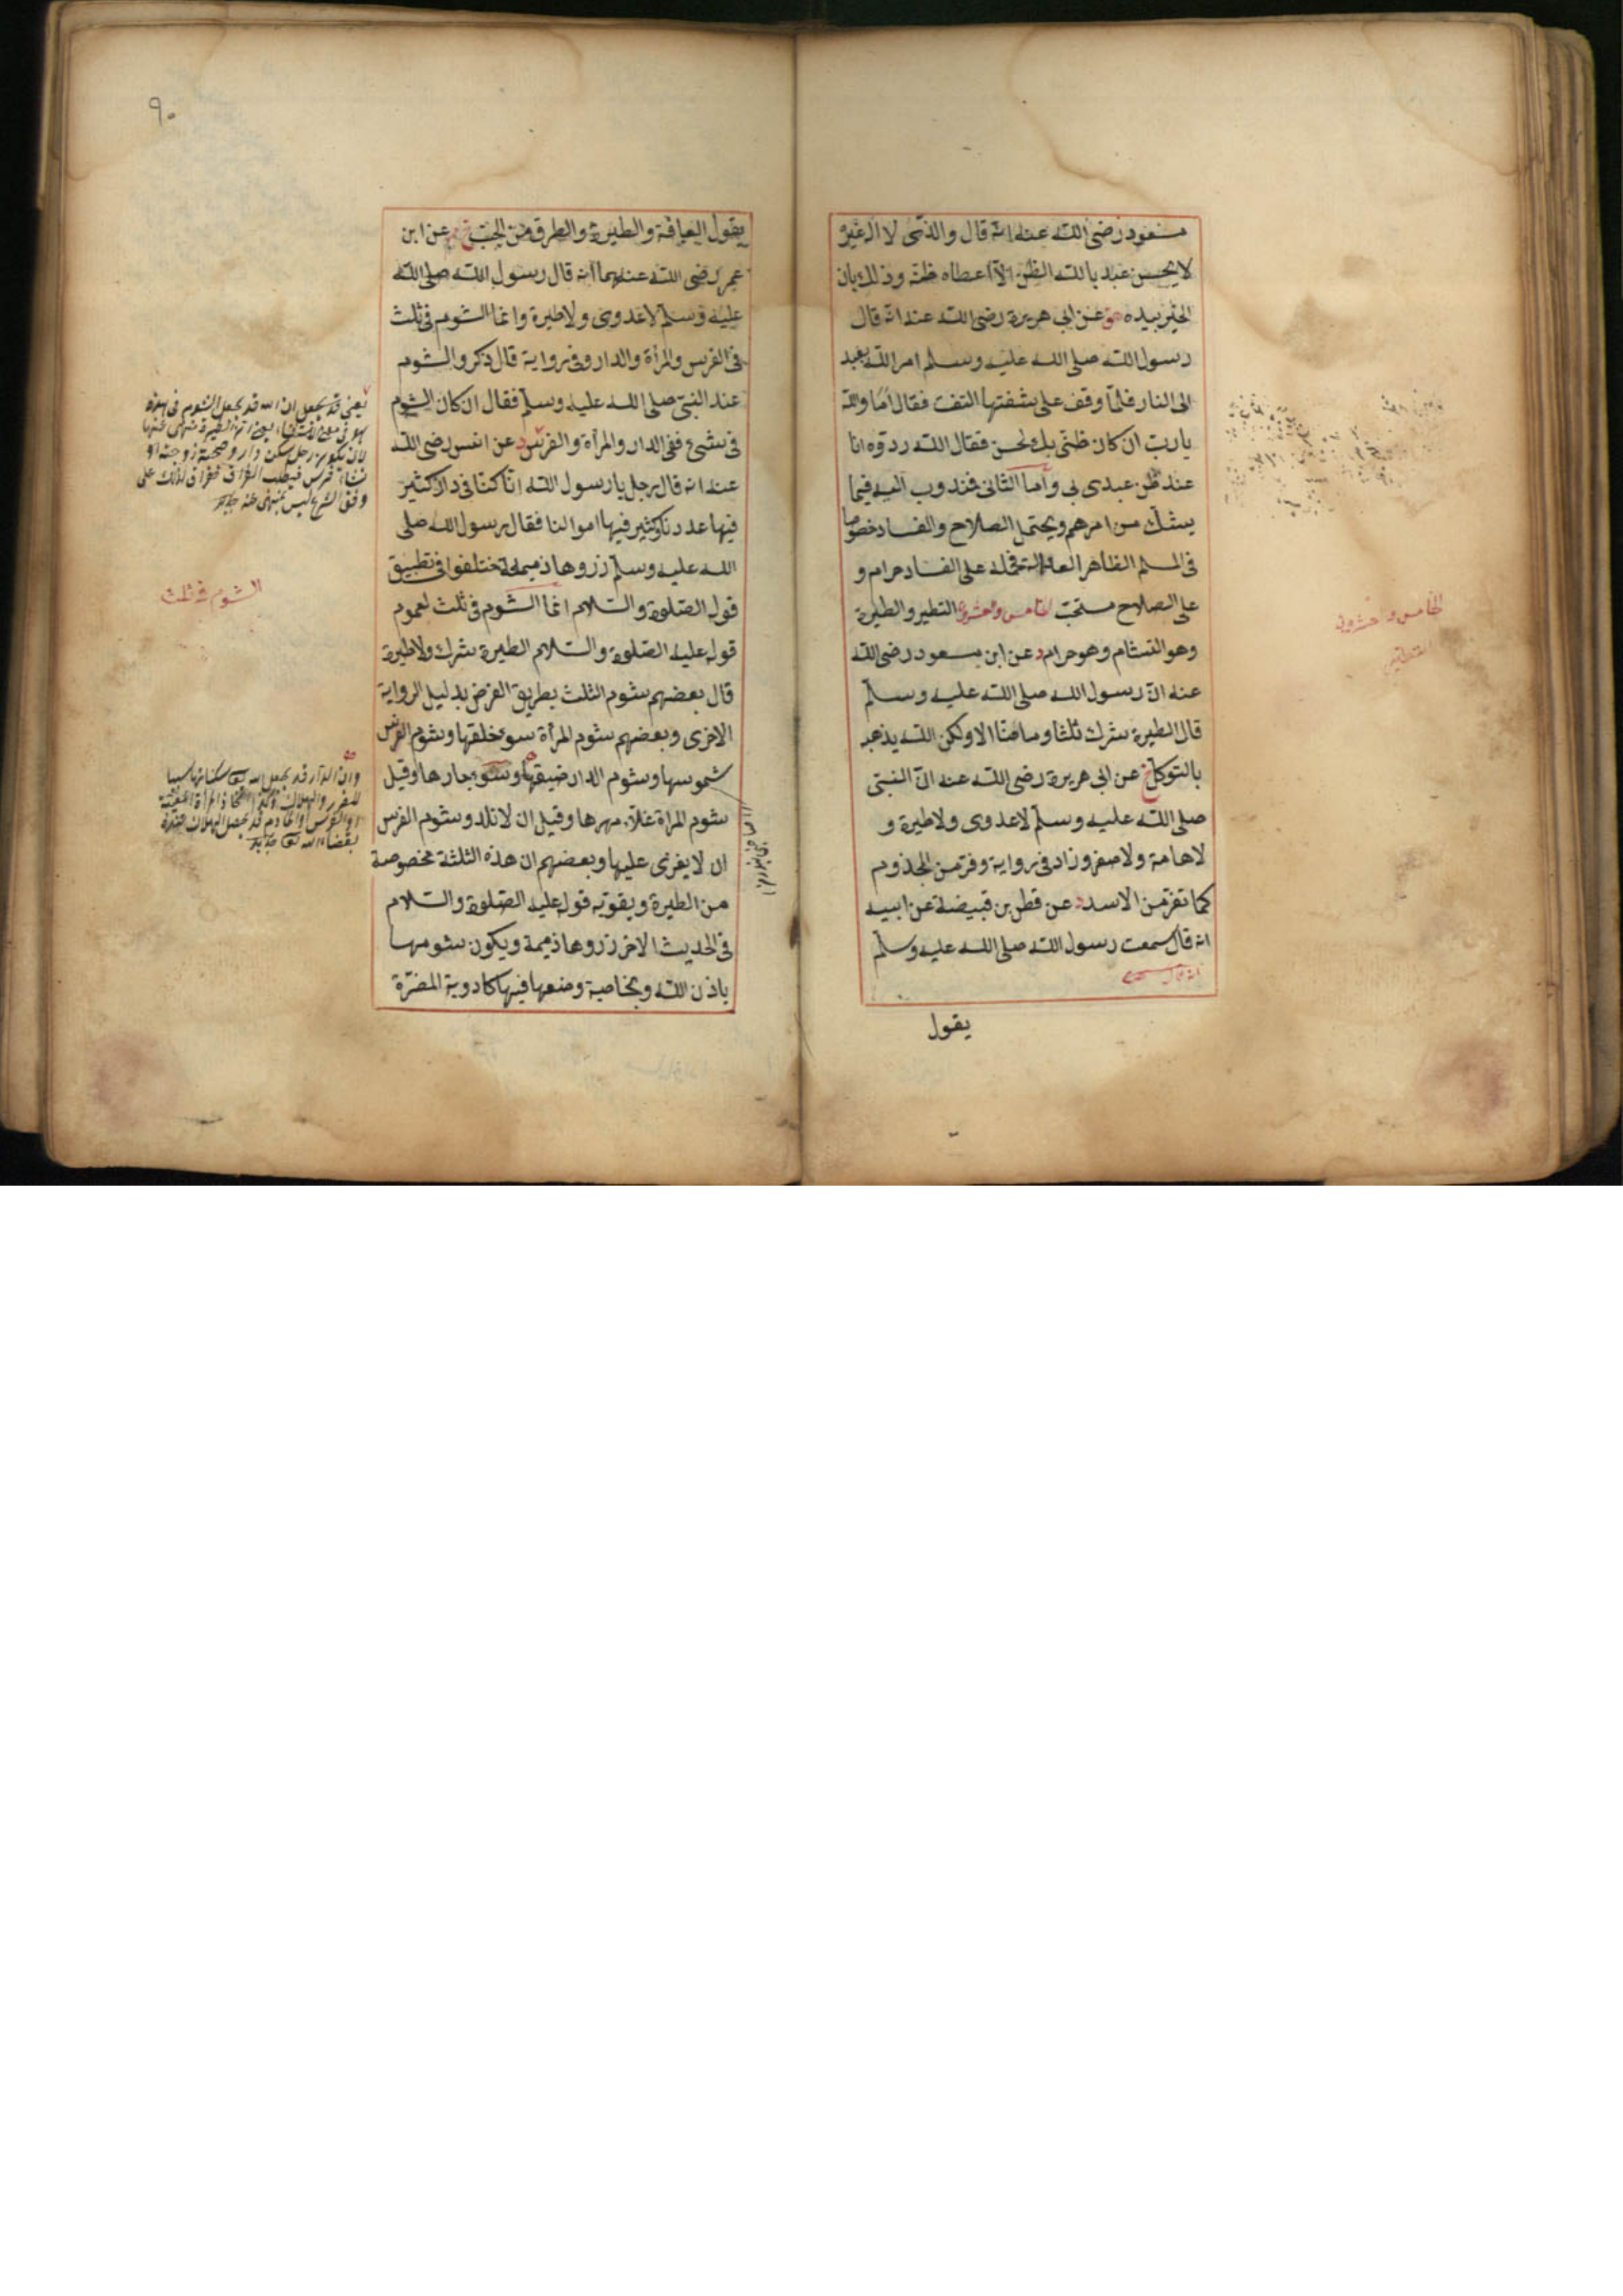 مسعود رضى الله عنه انه قال والذى لا اله غيره
لا يحسن عبد بالله الظن الا اعطاه ظنه وذلك بان
الخير بيده هق عن ابى هريرة رضى الله عنه انه قال
رسول الله صلى الله عليه وسلم امر الله بعبد
الى النار فلما وقف على شفتها التفت فقال اما والله
يا رب ان كان ظنى بك لحسن فقال الله ردوه انا
عند ظن عبدى بى وأما الثانى فندوب اليه فيما
يشك من امرهم ويحتمل الصلاح والفساد خصوصا
فى المسلم الظاهر العدالة فحمله على الفساد حرام و
على الصلاح مستحب الخامس والعشرون التطير والطيرة
وهو التشائم وهو حرام د عن ابن مسعود رضى الله
عنه ان رسول الله صلى الله عليه وسلم
قال الطيرة شرك ثلثا وما منا الا ولكن الله يذهبه
بالتوكل خ عن ابى هريرة رضى الله عنه ان النبى
صلى الله عليه وسلم لا عدوى ولا طيرة و
لا هامة ولا صفر وزاد فى رواية وفر من المجذوم
كما تفر من الاسد د عن قطن بن قبيضة عن ابيه
انه قال سمعت رسول الله صلى الله عليه وسلم
انه قال سمعت
يقول
الخامس والعشرون
التطير
٩٠
يقول العيافة والطيرة والطرق من الجبت خ م عن ابن
عمر رضى الله عنهما أنه قال رسول الله صلى الله
عليه وسلم لا عدوى ولا طيرة وانما الشوم فى ثلث
فى الفرس والمرأة والدار وفى رواية قال ذكروا الشوم
عند النبى صلى الله عليه وسلم فقال ان كان الشوم
فى شئ ففى الدار والمرأة والفرس د عن انس رضى الله
عنه انه قال رجل يا رسول الله انا كنا فى دار كثير
فيها عددنا وكثير فيها اموالنا فقال رسول الله صلى
الله عليه وسلم زروها ذميمة اختلفوا فى تطبيق
قول الصلوة والسلام انما الشوم فى ثلث لعموم
قوله عليه الصلوة والسلام الطيرة شرك ولا طيرة
قال بعضهم شوم الثلث بطريق الفرض بدليل الرواية
الاخرى وبعضهم شوم المرأة سوء خلقها وشوم الفرس
شموسها وشوم الدار ضيقها وسوء جارها وقيل
شوم المراة غلاء مهرها وقيل ان لا تلد وشوم الفرس
ان لا يغزى عليها وبعضهم ان هذه الثلثة مخصوصة
من الطيرة ويقويه قوله عليه الصلوة والسلام
فى الحديث الاخر زروها ذميمة ويكون شومها
باذن الله وبخاصية وضعها فيها كادوية المضرة
يعنى قد يجعل ان الله قد يجعل الشوم فى هذه
وفق الشرع ليس بمنهى عنه
الشوم فى ثلث
وان الدار قد يجعل الله تعا سكناها سببا
للضرر والهلاك وكذا اتخاذ المرأة المعينة
او الفرس والخادم قد يحصل الهلاك عنده
بقضاء الله تعا